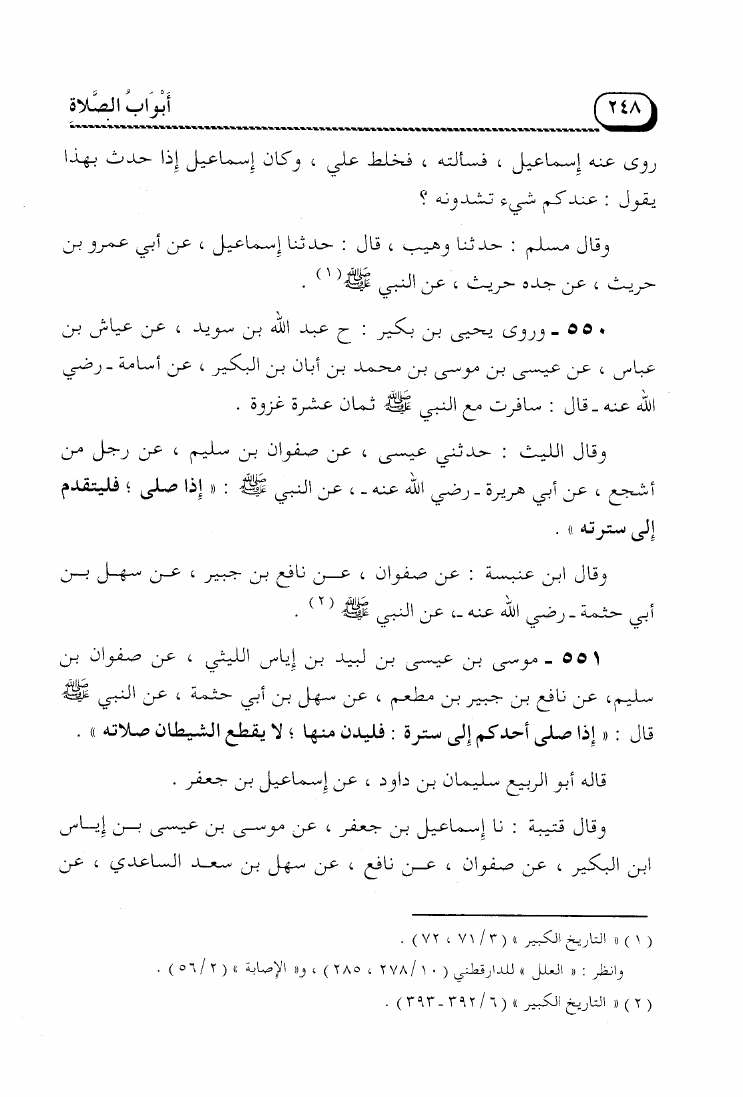 ٢٤٨
أَبْوَابُ الصَّلَاة
روى عنه إسماعيل ، فسألته ، فخلط علي ، وكان إسماعيل إذا حدث بهذا
يقول : عندكم شيء تشدونه ؟
وقال مسلم : حدثنا وهيب ، قال : حدثنا إسماعيل ، عن أبي عمرو بن
حريث ، عن جده حريث ، عن النبي ﷺ (١) .
٥٥٠ ـ وروى يحيى بن بكير : ح عبد الله بن سويد ، عن عياش بن
عباس ، عن عيسى بن موسى بن محمد بن أبان بن البكير ، عن أسامة ـ رضي
الله عنه ـ قال : سافرت مع النبي ﷺ ثمان عشرة غزوة .
وقال الليث : حدثني عيسى ، عن صفوان بن سليم ، عن رجل من
أشجع ، عن أبي هريرة ـ رضي الله عنه ـ ، عن النبي ﷺ : « إذا صلى ؛ فليتقدم
إلى سترته » .
وقال ابن عنبسة : عن صفوان ، عــن نافع بن جبير ، عـن سهـل بـن
أبي حثمة ـ رضي الله عنه ـ، عن النبي ﷺ (٢) .
٥٥١ ـ موسى بن عيسى بن لبيد بن إياس الليثي ، عن صفوان بن
سليم، عن نافع بن جبير بن مطعم ، عن سهل بن أبي حثمة ، عن النبي ﷺ
قال : « إذا صلى أحدكم إلى سترة : فليدن منها ؛ لا يقطع الشيطان صلاته » .
قاله أبو الربيع سليمان بن داود ، عن إسماعيل بن جعفر .
وقال قتيبة : نا إسماعيل بن جعفر ، عن موسـى بن عيسى بـن إيـاس
ابن البكير ، عن صفوان ، عــن نافع ، عن سهل بن سعـد الساعدي ، عن
(١) « التاريخ الكبير » (٣/ ٧١ ، ٧٢) .
وانظر : « العلل » للدارقطني (١٠/ ٢٧٨ ، ٢٨٥) ، و« الإصابة » (٢/ ٥٦) .
(٢) « التاريخ الكبير » (٦/ ٣٩٢ ـ ٣٩٣) .